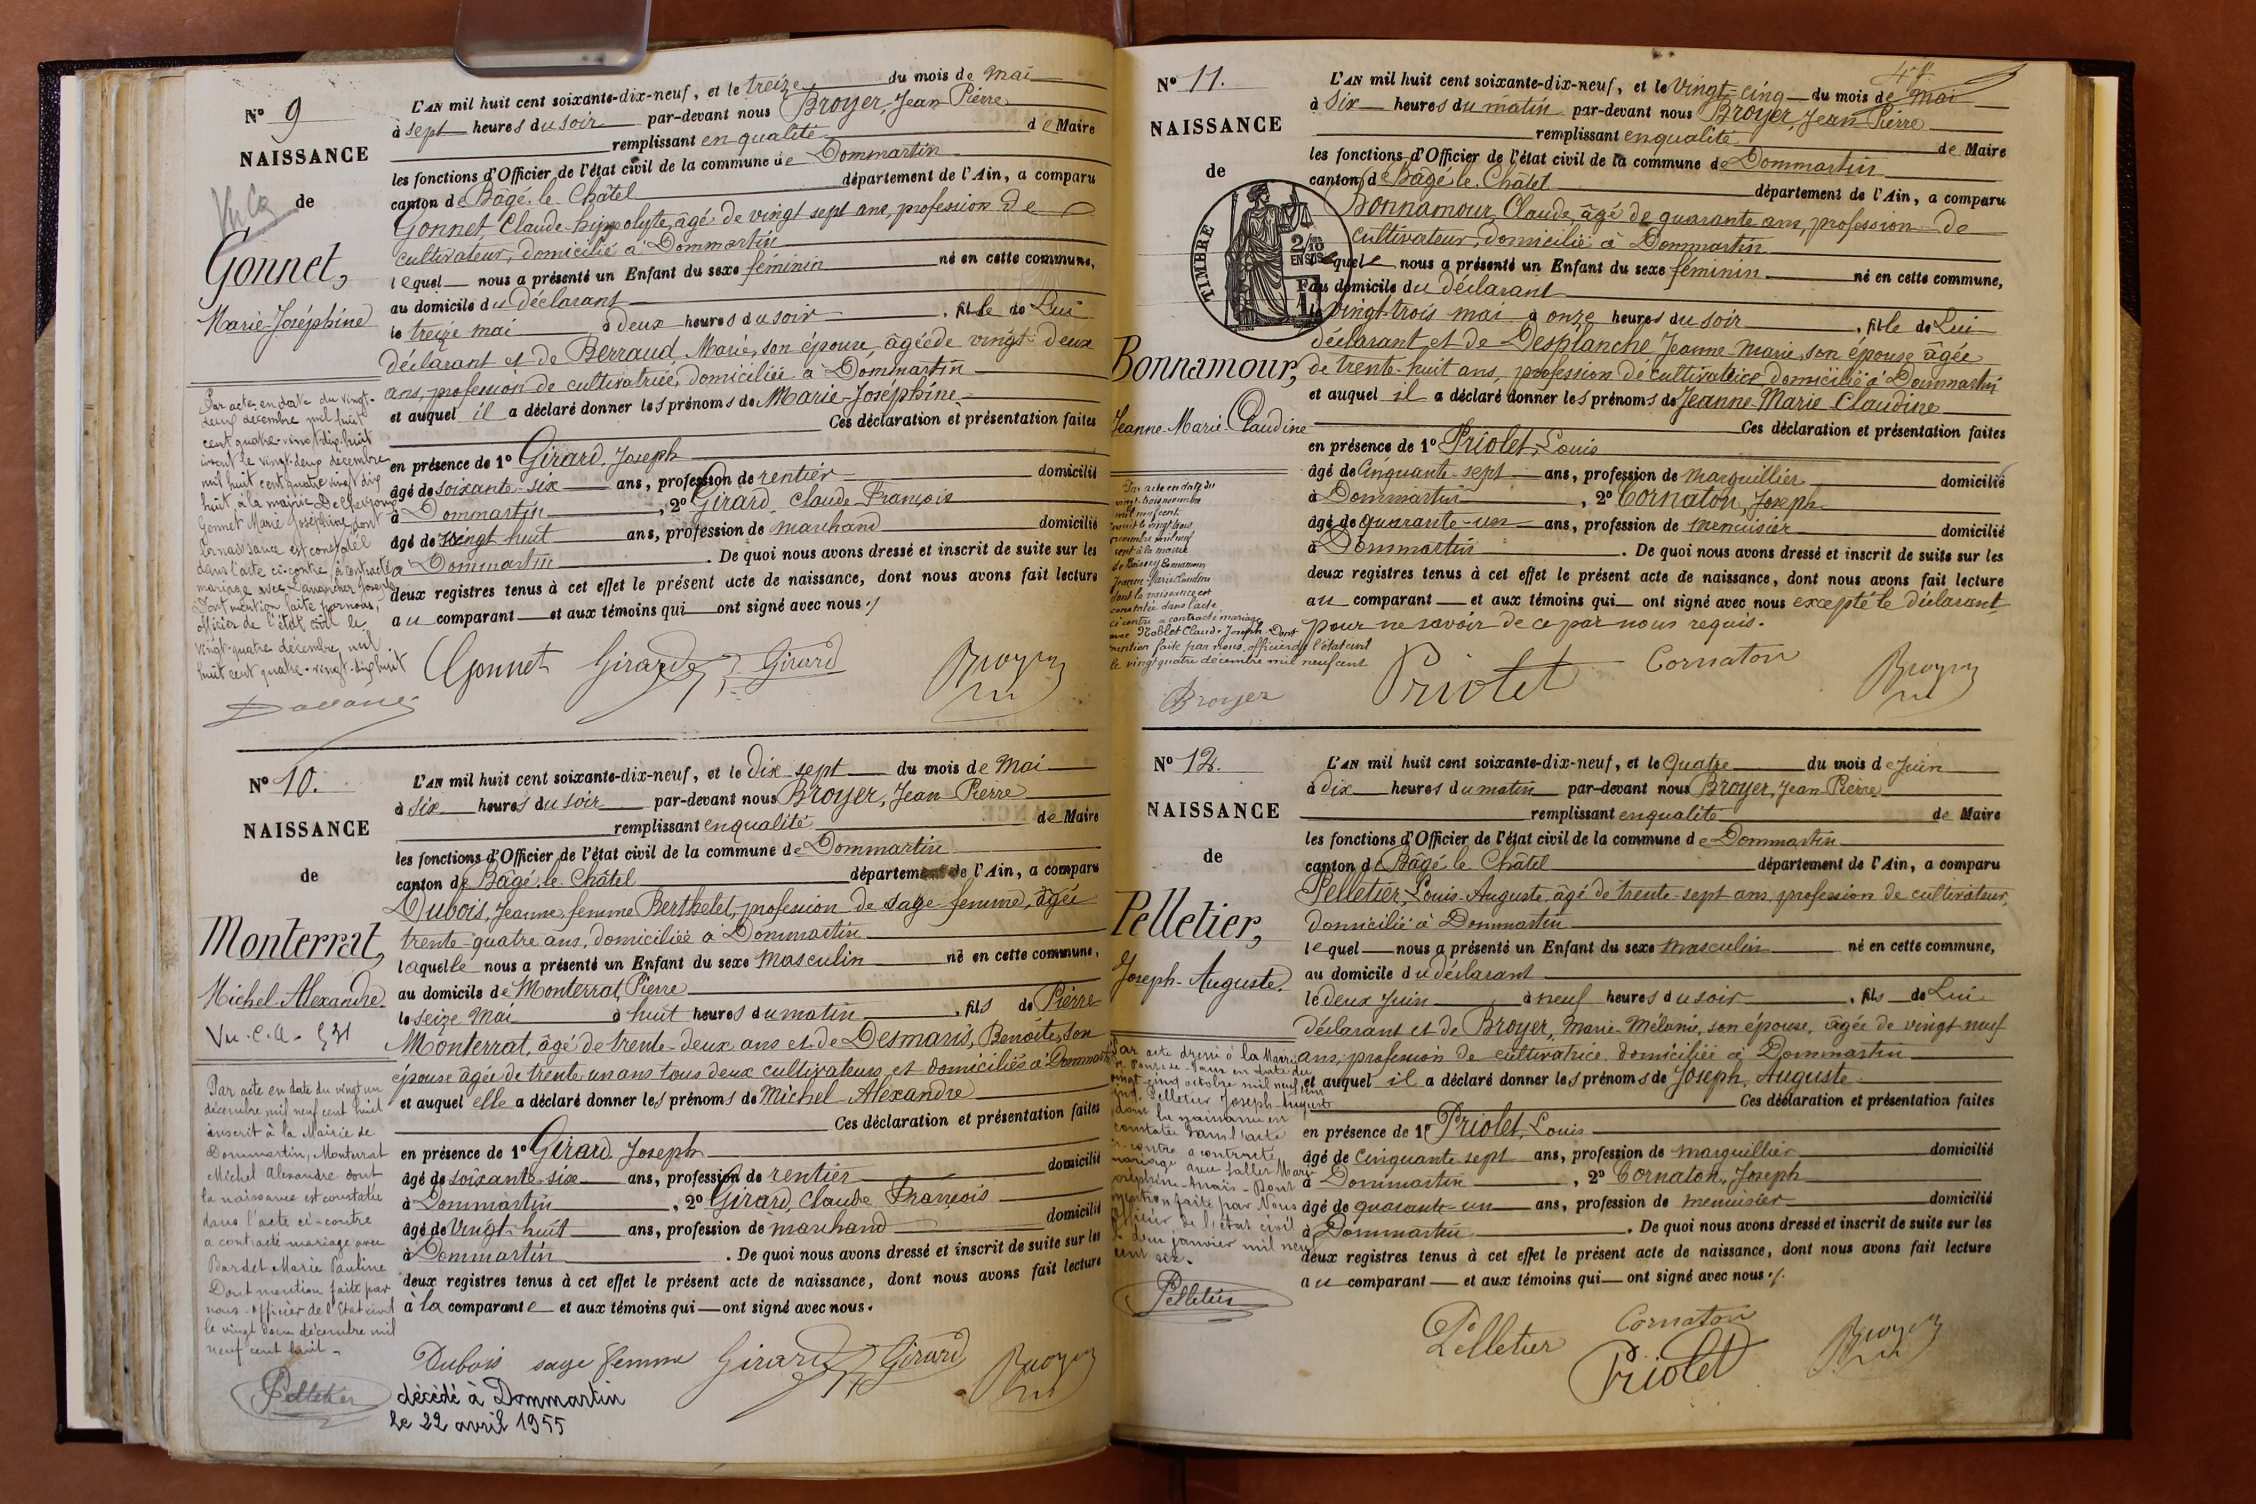 Nº 9
NAISSANCE
de
Gonnet,
Marie-Joséphine
Par acte en date du vingt-
deux décembre mil huit
cent quatre-vingt-dix-huit
inscrit le vingt-deux décembre
mil huit cent quatre vingt dix
huit, à la mairie de
Gonnet Marie Joséphine dont
la naissance est constatée
dans l'acte ci-contre, a contracté
mariage avec Lavancher Joseph
Dont mention faite par nous,
officier de l'état civil le
vingt-quatre décembre mil
huit cent quatre-vingt-dix huit
L'AN mil huit cent soixante-dix-neuf, et le treize du mois de Mai
à sept heures du soir par-devant nous Broyer, Jean Pierre
remplissant en qualité de Maire
les fonctions d'Officier de l'état civil de la commune de Dommartin
canton de Bâgé-le-Châtel département de l'Ain, a comparu
Gonnet, Claude-hyppolyte, âgé de vingt sept ans, profession de
cultivateur, domicilié à Dommartin
lequel nous a présenté un Enfant du sexe féminin né en cette commune,
au domicile du déclarant
le treize mai à deux heures du soir, fille de Lui
déclarant et de Berraud, Marie, son épouse, âgée de vingt-deux
ans, profession de cultivatrice, domiciliée à Dommartin
et auquel il a déclaré donner les prénoms de Marie-Joséphine
Ces déclaration et présentation faites
en présence de 1º Girard, Joseph
âgé de soixante-six ans, profession de rentier domicilié
à Dommartin, 2º Girard, Claude François
âgé de vingt huit ans, profession de marchand domicilié
à Dommartin. De quoi nous avons dressé et inscrit de suite sur les
deux registres tenus à cet effet le présent acte de naissance, dont nous avons fait lecture
au comparant et aux témoins qui ont signé avec nous ./
Gonnet Girard J. Girard Broyer
Nº 10.
NAISSANCE
de
Monterrat,
Michel-Alexandre.
Par acte en date du vingt un
décembre mil neuf cent huit
inscrit à la Mairie de
Dommartin, Monterrat
Michel Alexandre dont
la naissance est constatée
dans l'acte ci-contre
a contracté mariage avec
Bardet Marie Pauline
Dont mention faite par
nous officier de l'Etat civil
le vingt deux décembre mil
neuf cent huit.
Pelletier
L'AN mil huit cent soixante-dix-neuf, et le dix-sept du mois de Mai
à six heures du soir par-devant nous Broyer, Jean Pierre
remplissant en qualité de Maire
les fonctions d'Officier de l'état civil de la commune de Dommartin
canton de Bâgé-le-Châtel département de l'Ain, a comparu
Dubois, Jeanne femme Berthelet, profession de sage-femme, âgée
trente-quatre ans, domiciliée à Dommartin
laquelle nous a présenté un Enfant du sexe Masculin né en cette commune,
au domicile de Monterrat, Pierre
le seize Mai à huit heures du matin, fils de Pierre
Monterrat, âgé de trente-deux ans et de Desmaris, Benoîte, son
épouse âgée de trente un ans tous deux cultivateurs et domiciliés à Dommartin
et auquel elle a déclaré donner les prénoms de Michel-Alexandre
Ces déclaration et présentation faites
en présence de 1º Girard, Joseph
âgé de soixante-six ans, profession de rentier domicilié
à Dommartin, 2º Girard, Claude François
âgé de vingt-huit ans, profession de marchand domicilié
à Dommartin. De quoi nous avons dressé et inscrit de suite sur les
deux registres tenus à cet effet le présent acte de naissance, dont nous avons fait lecture
à la comparante et aux témoins qui ont signé avec nous.
Dubois sage femme Girard J. Girard Broyer
décédé à Dommartin
le 22 avril 1955
Nº 11.
NAISSANCE
de
TIMBRE
2/10
EN SUS
Bonnamour,
Jeanne-Marie-Claudine
Par acte en date du
vingt-trois novembre
mil neuf cent
inscrit le vingt trois
novembre mil neuf
cent à la mairie
de Boissey Bonnamour
Jeanne-Marie-Claudine
dont la naissance est
constatée dans l'acte
ci-contre a contracté mariage
avec Noblet Claude-Joseph. Dont
mention faite par nous, officier de l'état civil
le vingt quatre décembre mil neuf cent
Broyer
L'AN mil huit cent soixante-dix-neuf, et le Vingt-cinq du mois de Mai
à six heures du matin par-devant nous Broyer, Jean Pierre
remplissant en qualité de Maire
les fonctions d'Officier de l'état civil de la commune de Dommartin
canton de Bâgé-le-Châtel département de l'Ain, a comparu
Bonnamour, Claude, âgé de quarante ans, profession de
cultivateur, domicilié à Dommartin
lequel nous a présenté un Enfant du sexe féminin né en cette commune,
au domicile du déclarant
le vingt-trois mai à onze heures du soir, fille de Lui
déclarant et de Desplanche, Jeanne-Marie, son épouse âgée
de trente-huit ans, profession de cultivatrice, domiciliée à Dommartin
et auquel il a déclaré donner les prénoms de Jeanne-Marie-Claudine
Ces déclaration et présentation faites
en présence de 1º Priolet, Louis
âgé de Cinquante-sept ans, profession de marguillier domicilié
à Dommartin, 2º Cornaton, Joseph
âgé de quarante-un ans, profession de menuisier domicilié
à Dommartin. De quoi nous avons dressé et inscrit de suite sur les
deux registres tenus à cet effet le présent acte de naissance, dont nous avons fait lecture
au comparant et aux témoins qui ont signé avec nous excepté le déclarant
pour ne savoir de ce par nous requis.
Priolet Cornaton Broyer
Nº 12.
NAISSANCE
de
Pelletier,
Joseph-Auguste.
Par acte dressé à la Mairie
vingt-cinq octobre mil neuf cent
Pelletier Joseph-Auguste
dont la naissance est
constatée dans l'acte
ci-contre a contracté
mariage avec Marie
Dont
mention faite par Nous
officier de l'état civil
le deux janvier mil neuf
cent six.
Pelletier
L'AN mil huit cent soixante-dix-neuf, et le Quatre du mois de Juin
à dix heures du matin par-devant nous Broyer, Jean Pierre
remplissant en qualité de Maire
les fonctions d'Officier de l'état civil de la commune de Dommartin
canton de Bâgé-le-Châtel département de l'Ain, a comparu
Pelletier, Louis-Auguste, âgé de trente-sept ans, profession de cultivateur,
domicilié à Dommartin
lequel nous a présenté un Enfant du sexe masculin né en cette commune,
au domicile du déclarant
le deux Juin à neuf heures du soir, fils de Lui
déclarant et de Broyer, Marie-Mélanie, son épouse, âgée de vingt-neuf
ans, profession de cultivatrice, domiciliée à Dommartin
et auquel il a déclaré donner les prénoms de Joseph, Auguste
Ces déclaration et présentation faites
en présence de 1º Priolet, Louis
âgé de Cinquante-sept ans, profession de marguillier domicilié
à Dommartin, 2º Cornaton, Joseph
âgé de quarante-un ans, profession de menuisier domicilié
à Dommartin. De quoi nous avons dressé et inscrit de suite sur les
deux registres tenus à cet effet le présent acte de naissance, dont nous avons fait lecture
au comparant et aux témoins qui ont signé avec nous ./.
Pelletier Cornaton Priolet Broyer